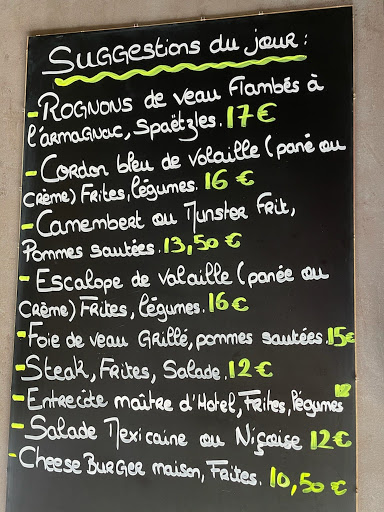 Suggestions du jour :
- Rognons de veau Flambés à
l'armagnac, Spaëtzles. 17€
- Cordon bleu de volaille (pané ou
crème) Frites, légumes. 16 €
- Camembert ou Munster Frit,
Pommes sautées. 13,50 €
- Escalope de volaille (panée ou
crème) Frites, légumes. 16€
- Foie de veau Grillé, pommes sautées. 15€
- Steak, Frites, Salade. 12€
- Entrecôte maître d'Hotel, Frites, légumes
- Salade Mexicaine ou Niçoise 12€
- Cheese Burger maison, Frites. 10,50 €